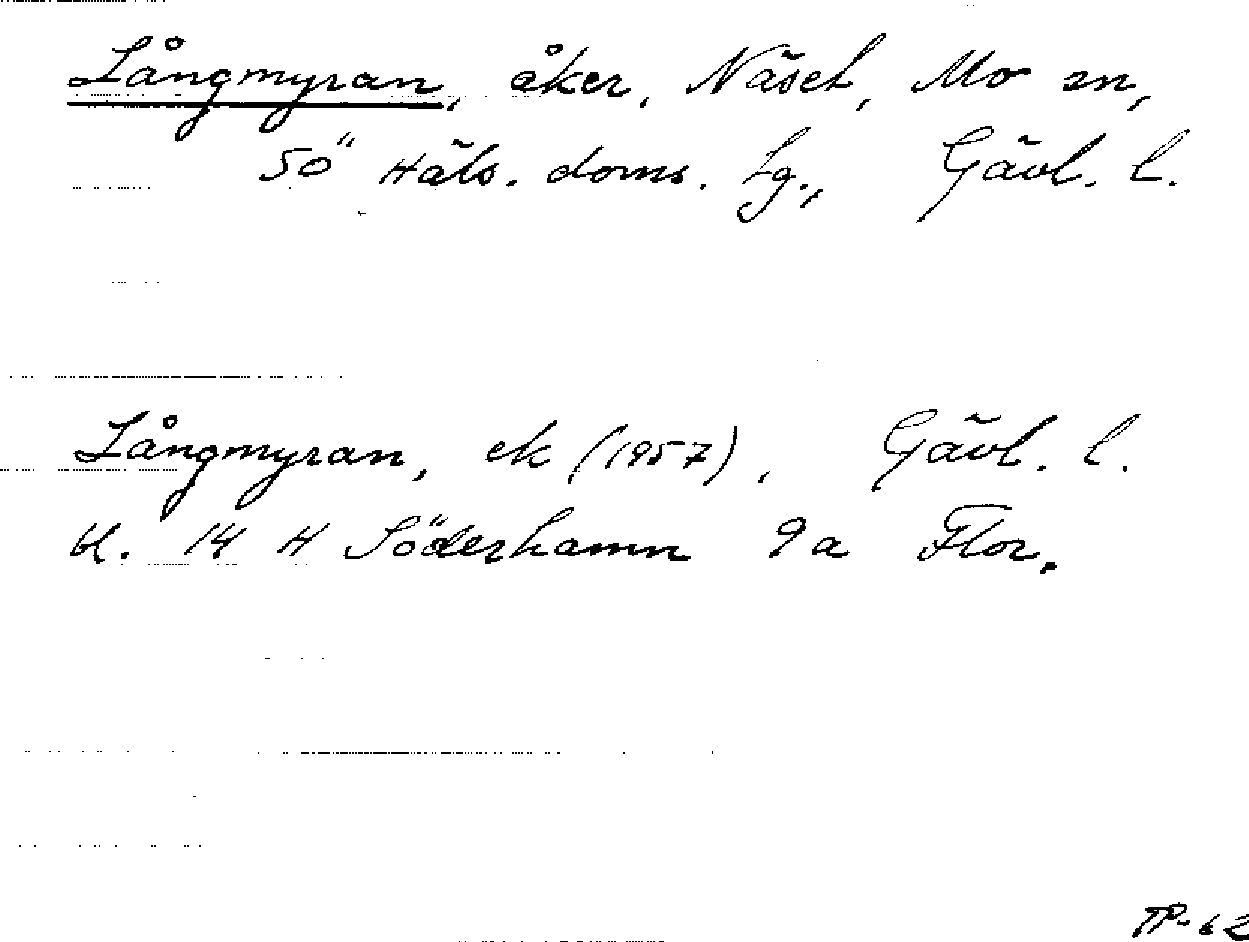 Långmyran, åker, Näset, Mo sn,
sö Häls. doms. Lg., Gävl. l.
Långmyran, ek (1957), Gävl. l.
bl. 14 H Söderhamn 9a Flor.
TP-62